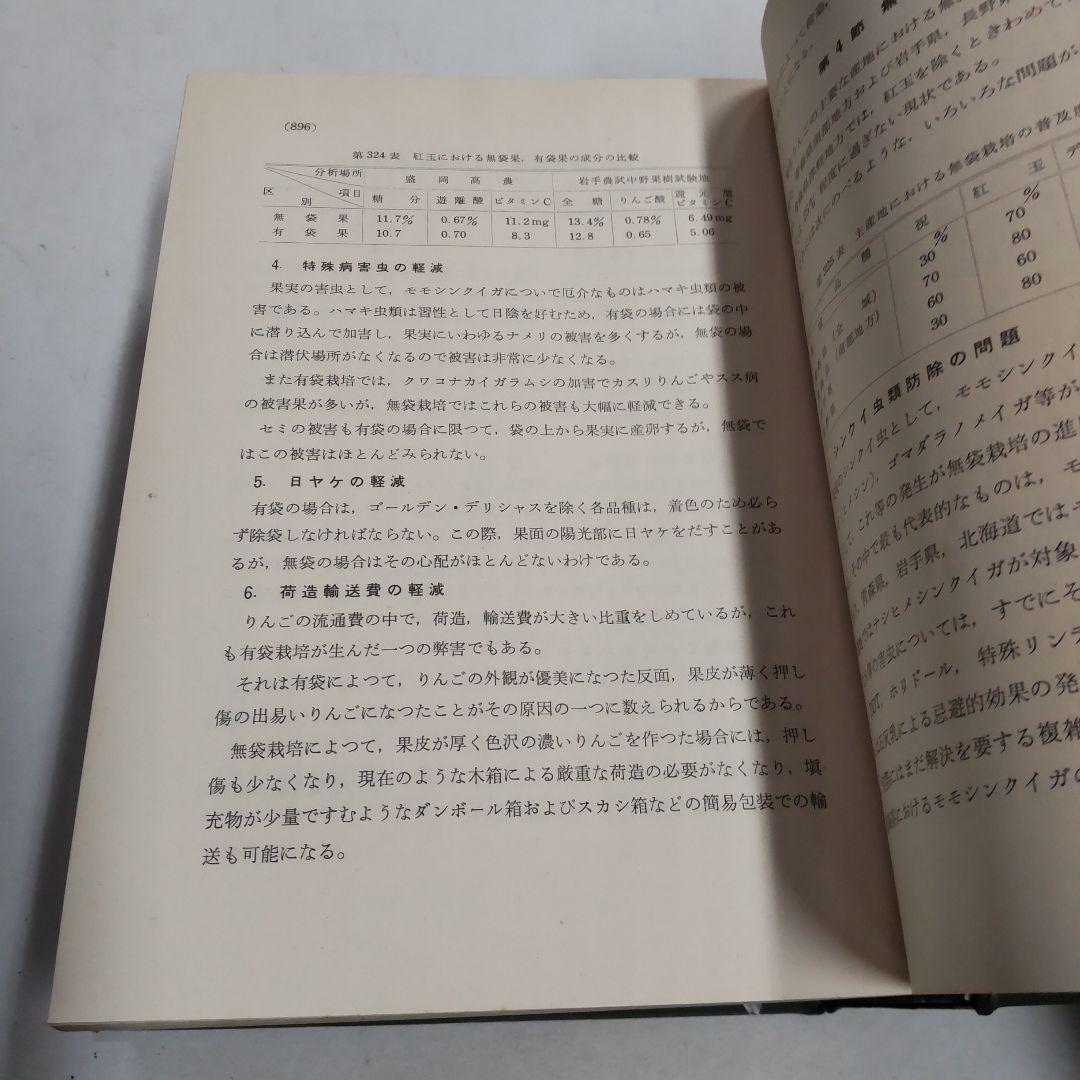 (896)
第324表　紅玉における無袋果，有袋果の成分の比較
分析場所　盛岡高農　岩手農試中野果樹試験地
区別　項目　糖分　遊離酸　ビタミンC　全糖　りんご酸　還元型ビタミンC
無袋果　11.7%　0.67%　11.2mg　13.4%　0.78%　6.49mg
有袋果　10.7　0.70　8.3　12.8　0.65　5.06
4.　特殊病害虫の軽減
果実の害虫として，モモシンクイガについで厄介なものはハマキ虫類の被
害である。ハマキ虫類は習性として日陰を好むため，有袋の場合には袋の中
に潜り込んで加害し，果実にいわゆるナメリの被害を多くするが，無袋の場
合は潜伏場所がなくなるので被害は非常に少なくなる。
また有袋栽培では，クワコナカイガラムシの加害でカスリりんごやスス病
の被害果が多いが，無袋栽培ではこれらの被害も大幅に軽減できる。
セミの被害も有袋の場合に限つて，袋の上から果実に産卵するが，無袋で
はこの被害はほとんどみられない。
5.　日ヤケの軽減
有袋の場合は，ゴールデン・デリシャスを除く各品種は，着色のため必ら
ず除袋しなければならない。この際，果面の陽光部に日ヤケをだすことがあ
るが，無袋の場合はその心配がほとんどないわけである。
6.　荷造輸送費の軽減
りんごの流通費の中で，荷造，輸送費が大きい比重をしめているが，これ
も有袋栽培が生んだ一つの弊害でもある。
それは有袋によつて，りんごの外観が優美になつた反面，果皮が薄く押し
傷の出易いりんごになつたことがその原因の一つに数えられるからである。
無袋栽培によつて，果皮が厚く色沢の濃いりんごを作つた場合には，押し
傷も少なくなり，現在のような木箱による厳重な荷造の必要がなくなり，塡
充物が少量ですむようなダンボール箱およびスカシ箱などの簡易包装での輸
送も可能になる。
第4節　無
の主要な産地における無
地方および岩手県，長野県
地方では，紅玉を除くときわめて
程度に過ぎない現状である。
のべるような，いろいろな問題が
第325表　主産地における無袋栽培の普及
祝　紅玉　デ
30%　70%
70　80
60　60
30　80
シンクイ虫類防除の問題
シンクイ虫として，モモシンクイ
ゴマダラノメイガ等が
これ等の発生が無袋栽培の進
その中で最も代表的なものは，モ
青森県，岩手県，北海道では
ではナシヒメシンクイガが対象
害虫については，すでにそ
DDT，ホリドール，特殊リン
石灰乳による忌避的効果の発
にはまだ解決を要する複雑
におけるモモシンクイガの